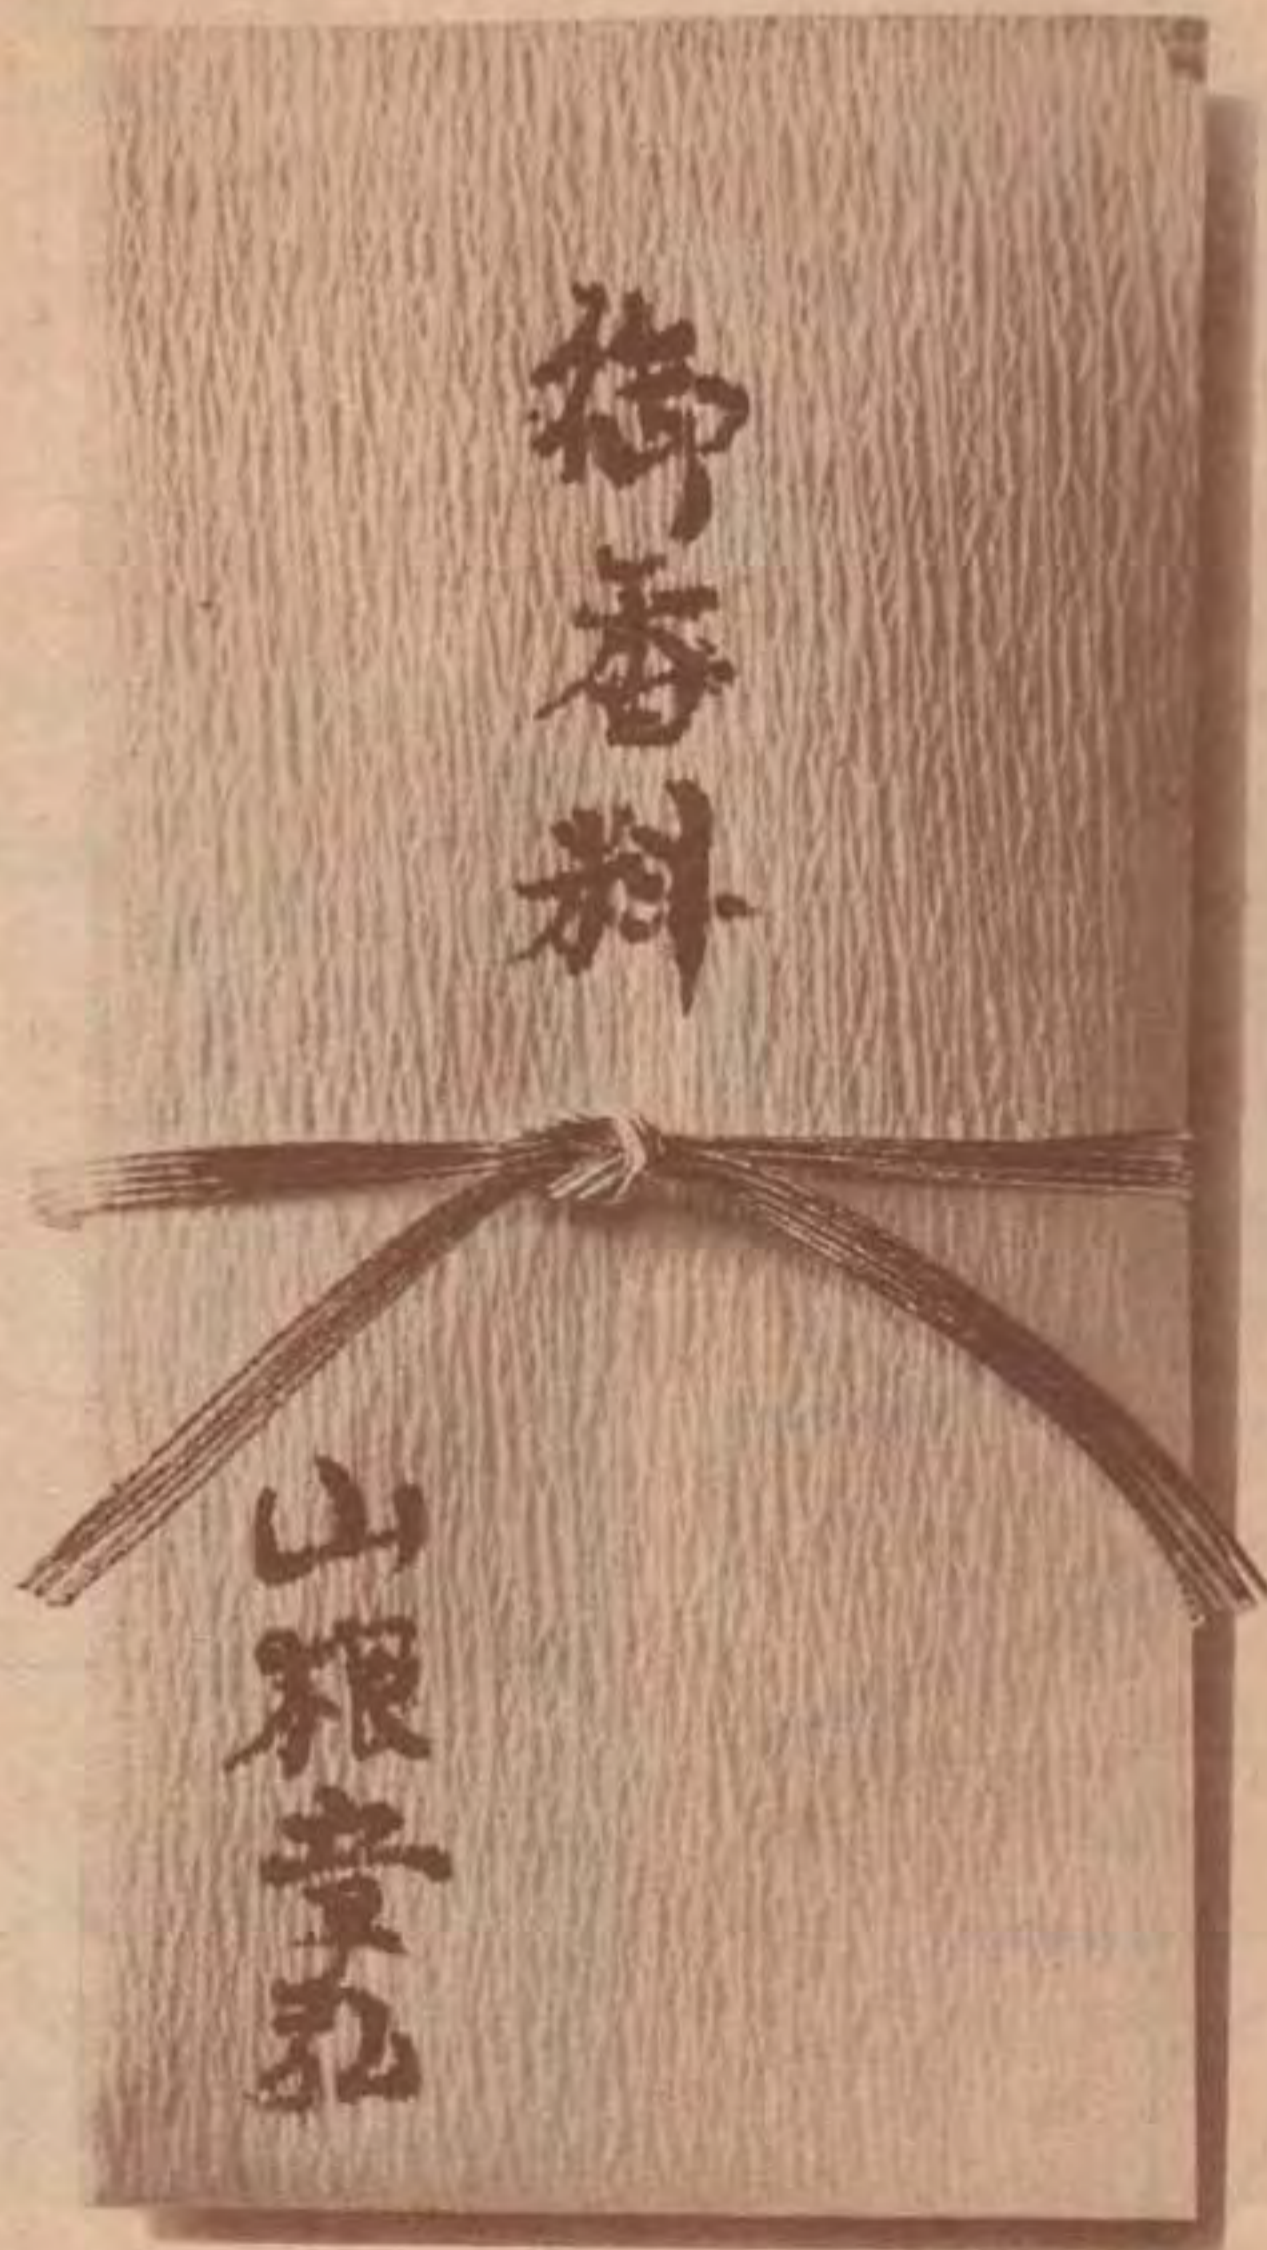 御香料
山根章弘